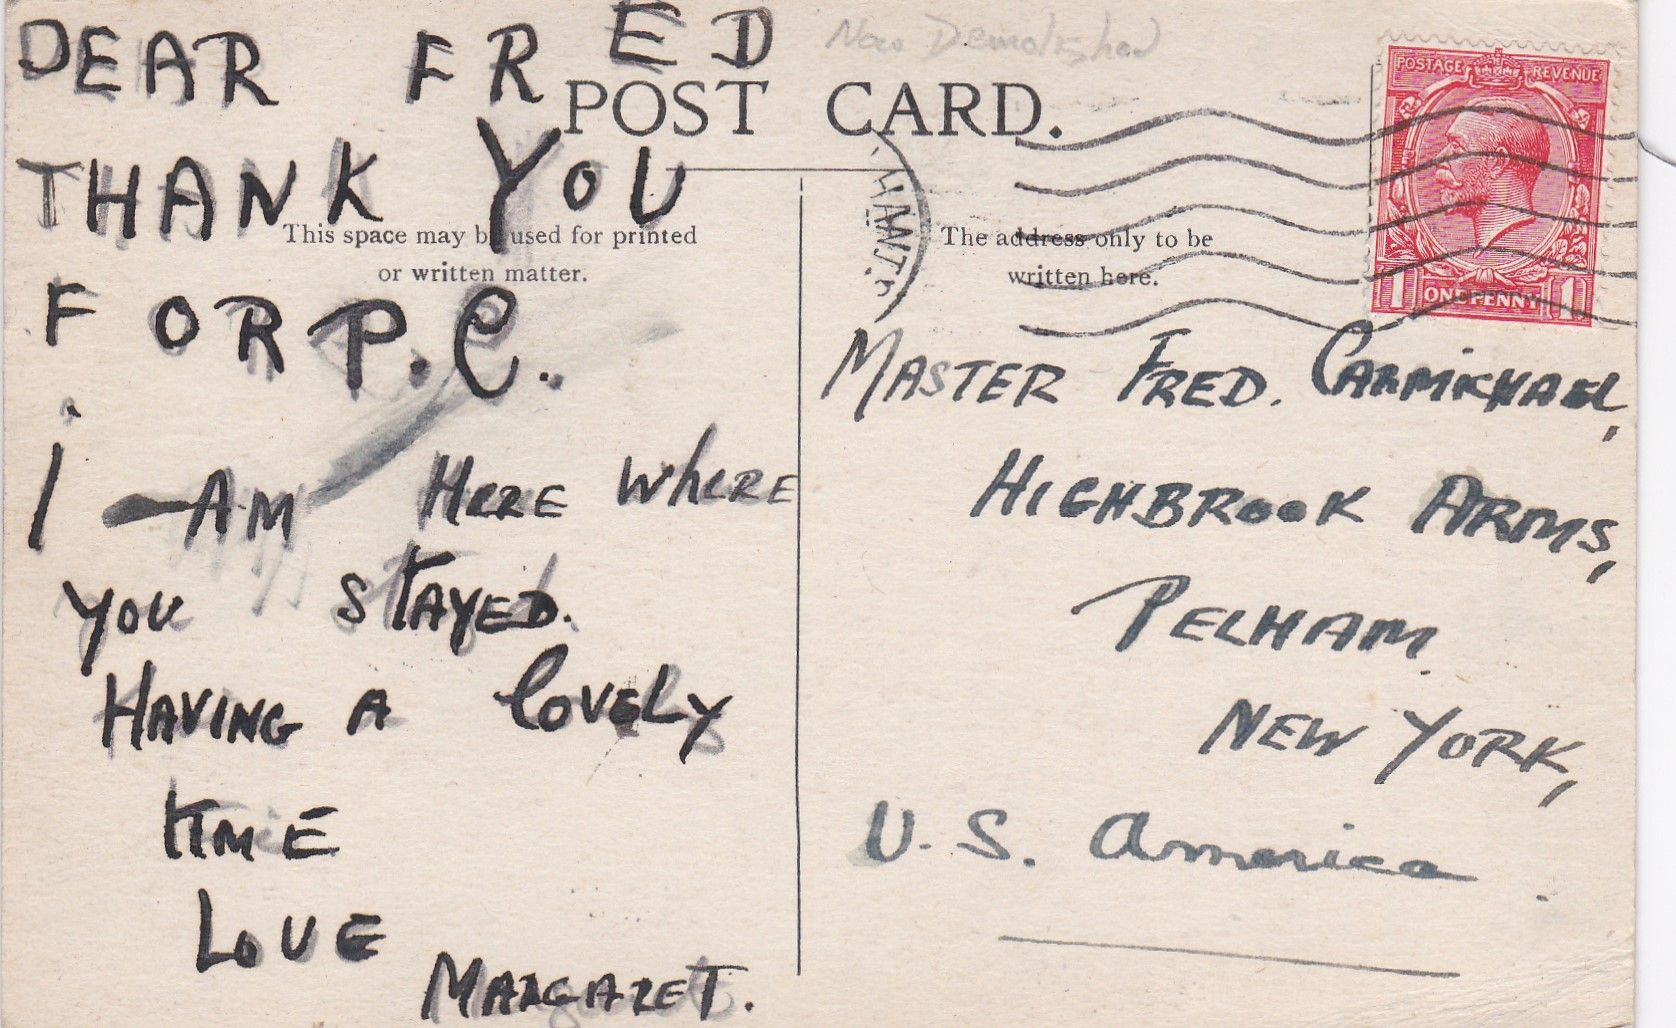 DEAR FRED
THANK YOU
FOR P.C.
I AM HERE WhERE
YOU STAYED.
HAVING A LOVELY
TIME
LOVE
MARGARET.
Now Demolished
POST CARD.
This space may be used for printed
or written matter.
The address only to be
written here.
HANTS
POSTAGE REVENUE
1 ONE PENNY 1
MASTER FRED. CARMIKHAEL,
HIGHBROOK ARMS,
PELHAM.
NEW YORK,
U.S. America